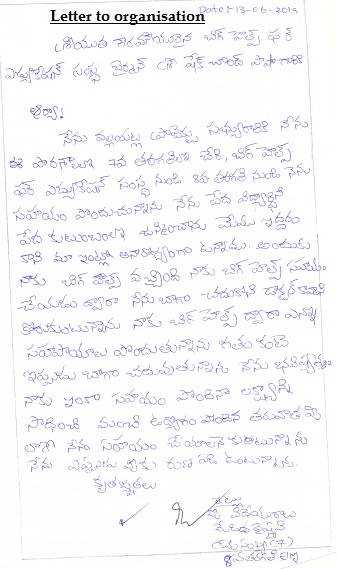 Letter to organisation
Date:- 13-06-2019
శ్రీయుత గౌరవనీయులైన బిగ్ హెల్ప్ ఫర్
ఎడ్యుకేషన్ సంస్థ చైర్మన్ శ్రీ షేక్ చాంద్ పాషా గారికి
ఆర్యా!
నేను సభ్యురాలికి నేను
ఈ పాఠశాలలో 7వ తరగతిలో చేరి, బిగ్ హెల్ప్
ఫర్ ఎడ్యుకేషన్ సంస్థ నుండి 8వ తరగతి నుండి నేను
సహాయం పొందుచున్నాను నేను పేద విద్యార్థిని
పేద కుటుంబంలో జన్మించాను మేము ఇద్దరం
కాని మా ఇంట్లో అనారోగ్యంగా ఉన్నాము. అందుకు
నాకు బిగ్ హెల్ప్ వచ్చింది నాకు బిగ్ హెల్ప్ సహాయం
చేయడం ద్వారా నేను బాగా చదువుకోని డాక్టర్ కావాలని
కోరుకుంటున్నాను నాకు బిగ్ హెల్ప్ ద్వారా ఎన్నో
సహాయాలు పొందుతున్నాను గతం కంటే
ఇప్పుడు బాగా చదువుతున్నాను నేను భవిష్యత్తులో
నాకు ఇంకా సహాయం పొందినా లక్ష్యాన్ని
సాధించి మంచి ఉద్యోగం పొందిన తరువాత మీ
లాగే నేను సహాయం చేయాలని అనుకుంటున్నాను
నేను ఎప్పుడు మీకు రుణ పడి ఉంటున్నాను.
కృతజ్ఞతలు
ఇట్లు
మీ విధేయురాలు